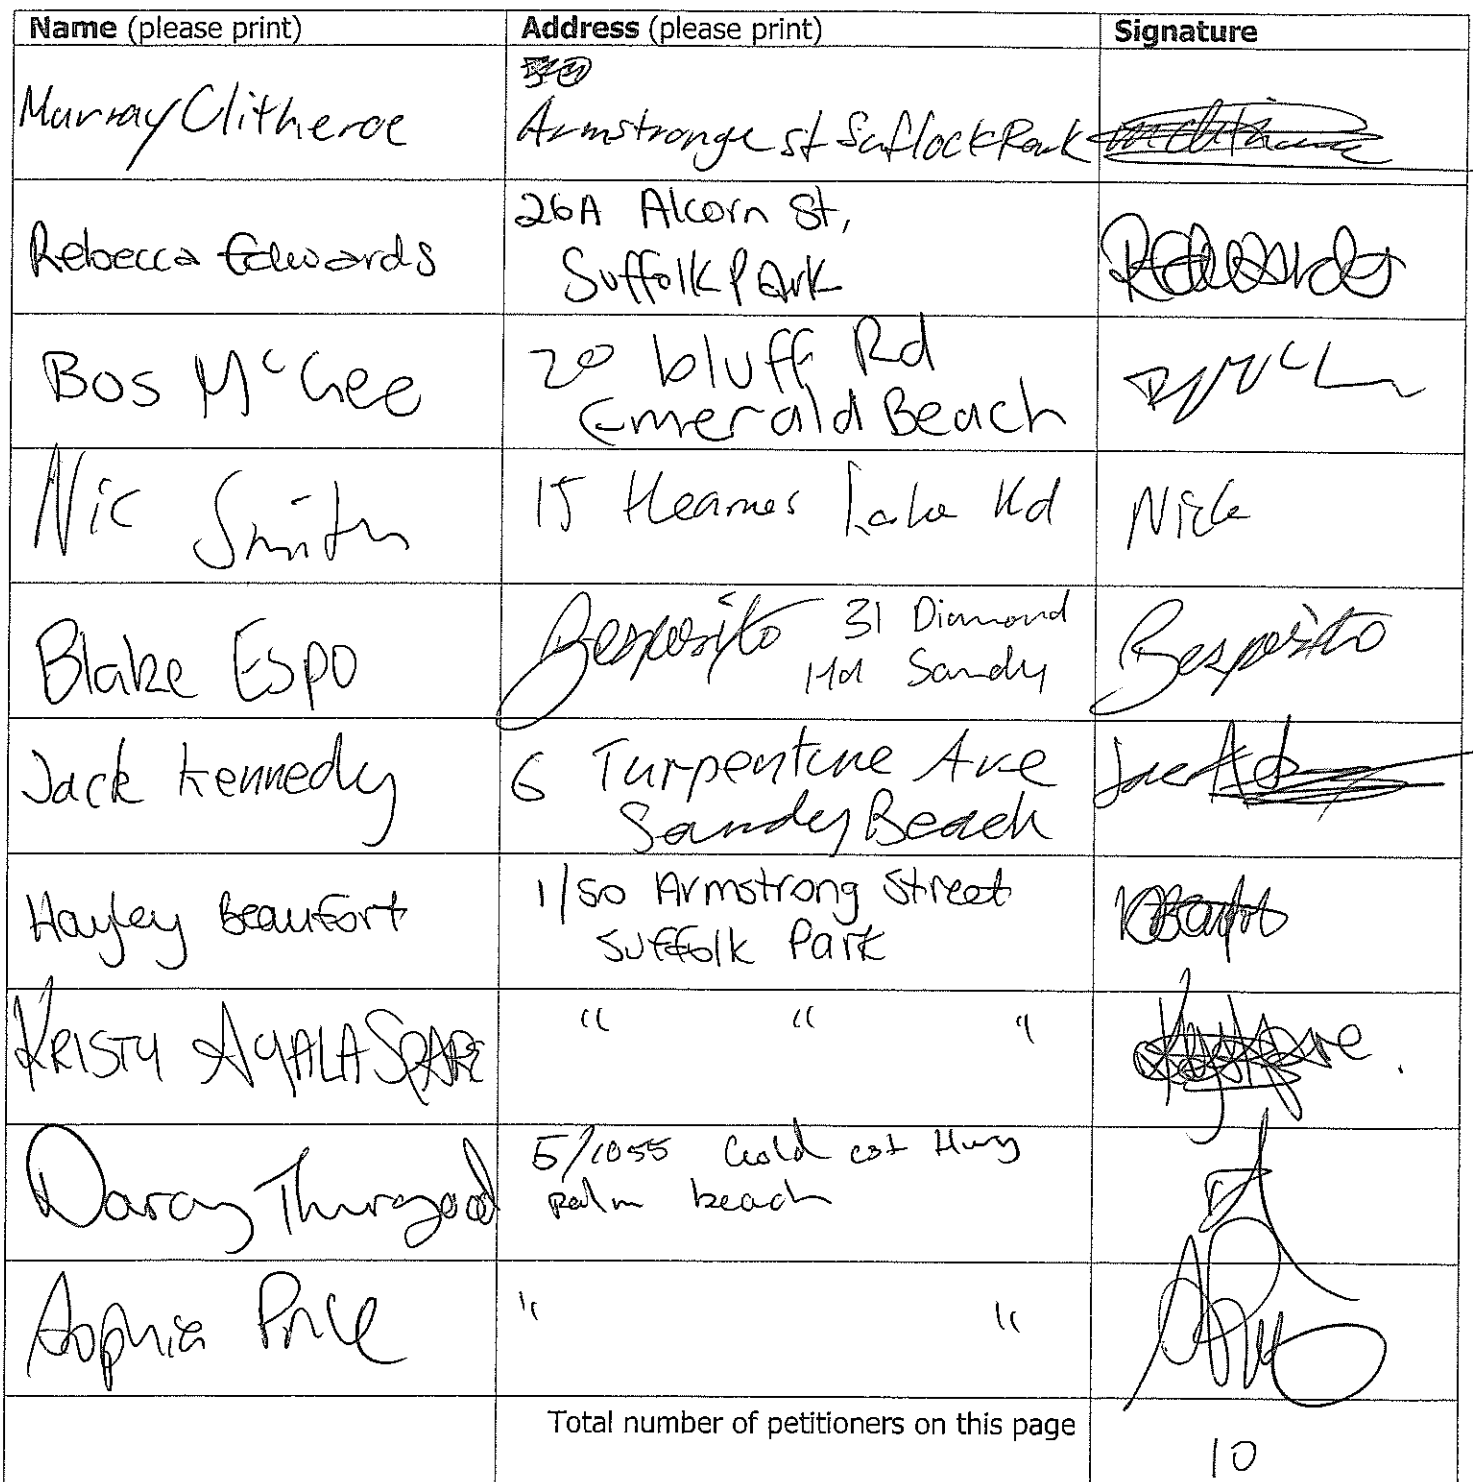 Name (please print) Address (please print) Signature
Murray Clitheroe
Armstrange st Suflock Park
Rebecca Edwards
26A Alcorn St,
Suffolk Park
REdwards
Bos McGee
20 bluff Rd
Emerald Beach
Nic Smith
15 Hearnes Lake Rd
Nick
Blake Espo
Besposito 31 Diamond
Hd Sandy
Besposito
Jack Kennedy
6 Turpentine Ave
Sandy Beach
Hayley Beaufort
1/50 Armstrong Street
Suffolk Park
KRISTY AYALA SPARE
" " "
Darcy Thurgood
5/1055 Gold cst Hwy
palm beach
Sophia Price
" "
Total number of petitioners on this page
10